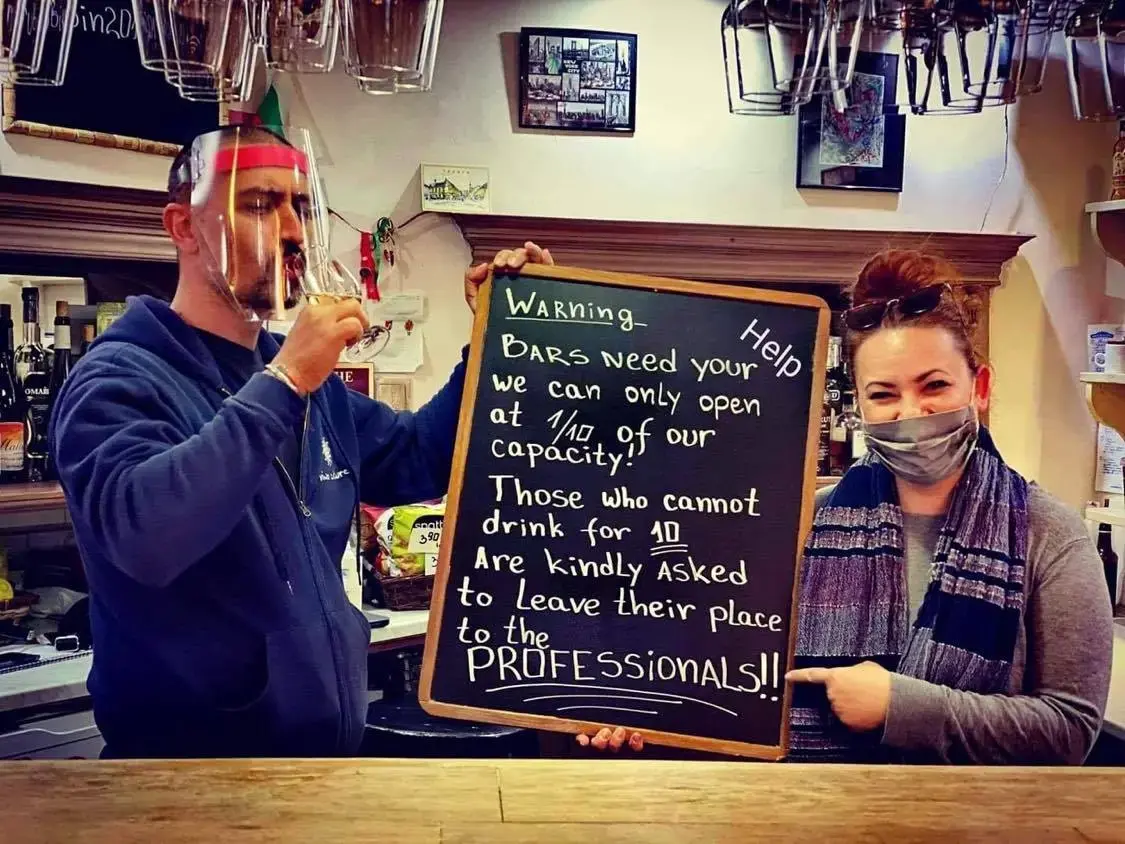 pin20
NEW YORK CITY
Warning
Bars need your Help
we can only open
at 1/10 of our
capacity!
Those who cannot
drink for 10
Are kindly asked
to leave their place
to the
PROFESSIONALS!!
THE
390